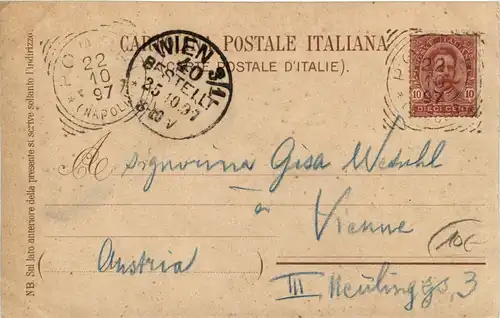 CARTOLINA POSTALE ITALIANA
(CARTE POSTALE D'ITALIE).
NB. Sul lato anteriore della presente si scrive soltanto l'indirizzo.
22
10
97
(NAPOLI)
WIEN 3/1
BESTELLT
25.10.97
POSTALE ITALIANE
10 DIECI CENT. 10
A Signorina Gisa
à
Vienne
Austria)
10€
III Neulingg. 3